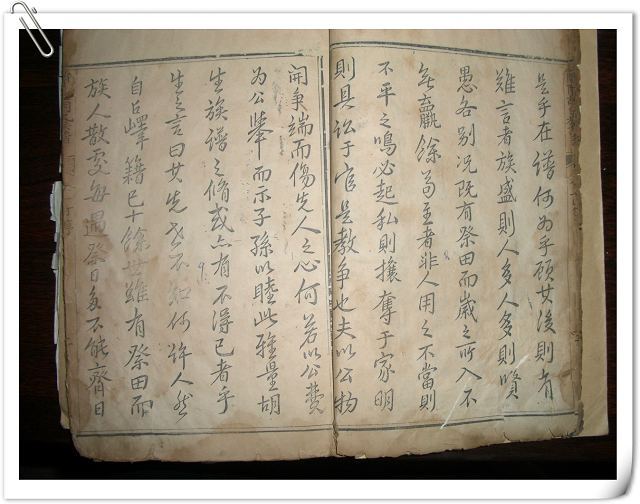 是乎在谱何为乎顾女後則有
難言者族盛則人多人多則賢
愚各别况既有祭田而歲之所入不
無贏餘苟主者非人用之不當則
不平之鳴必起私則攘奪于家明
則具訟于官是教争也夫以公物
開争端而傷先人之心何若以公費
为公舉而示子孫以睦此雅量胡
生族谱之脩或亦有不得已者乎
生之言曰女先世不知何許人然
自占嶧籍已十餘世雖有祭田而
族人散處每遇祭日多不能齊日